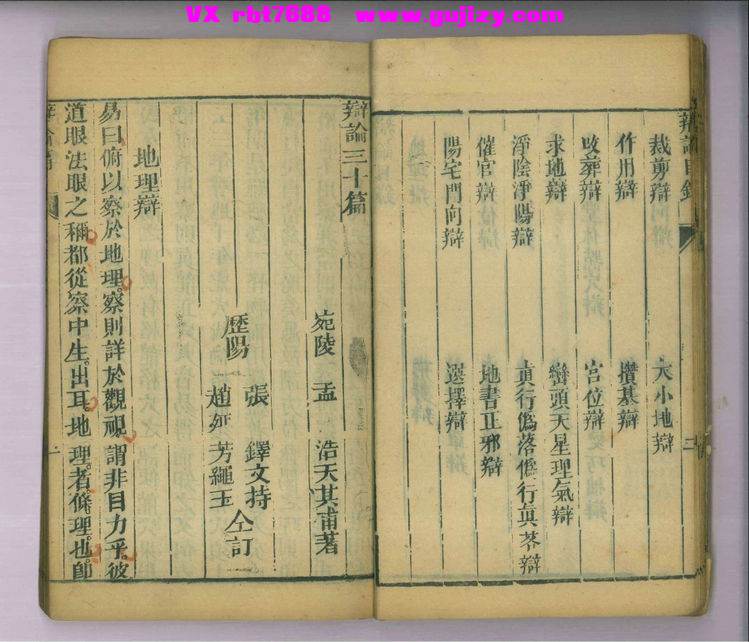 VX rbt7688 www.gujizy.com
辯論目錄
裁剪辯
大小地辯
作用辯
攢基辯
改葬辯
宮位辯
求地辯
巒頭天星理氣辯
淨陰淨陽辯
真行僞落僞行真落辯
催官辯
地書正邪辯
陽宅門向辯
選擇辯
二
辯論三十篇
宛陵 孟 浩天其甫著
歷陽
張 鐸文持
趙延芳繩玉
仝訂
地理辯
易曰俯以察於地理察則詳於觀視謂非目力乎彼
道眼法眼之稱都從察中生出耳地理者條理也即
一